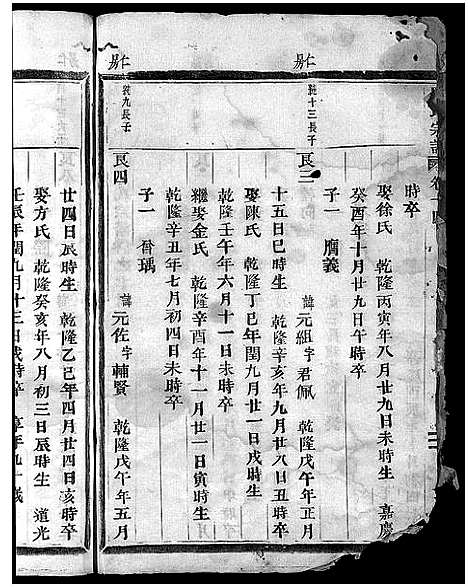 宗譜 卷十
時卒
娶徐氏 乾隆丙寅年八月廿九日未時生 嘉慶
癸酉年十月廿九日午時卒
子一 膺義
仁房
裝十三長子
良三 諱元組字君佩 乾隆戊午年正月
十五日巳時生 乾隆辛亥年九月廿八日丑時卒
娶陳氏 乾隆丁巳年閏九月廿一日戌時生
乾隆壬午年六月十一日未時卒
繼娶金氏 乾隆辛酉年十一月廿一日寅時生
乾隆辛丑年七月初四日未時卒
子一 啇瑀
仁房
裝九長子
良四 諱元佐字輔賢 乾隆戊午年五月
廿四日辰時生 乾隆乙巳年四月廿四日亥時卒
娶方氏 乾隆癸亥年八月初三日辰時生 道光
壬辰年閏九月十三日戌時卒 享年九十歲